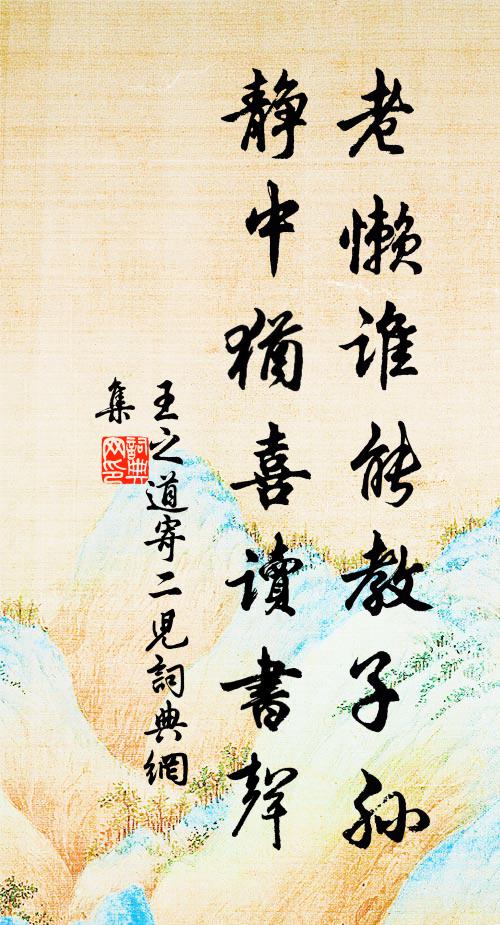 老懒谁能教子孙
静中犹喜读书声
王之道寄二儿词典網
集
詞典
网印